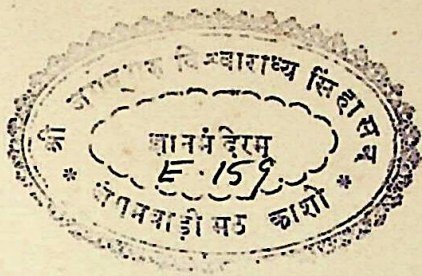 श्री जगद्गुरु विश्वाराध्य सिंहासन
ज्ञानमंदिरम्
E. 159.
* जंगमवाड़ी मठ काशी *